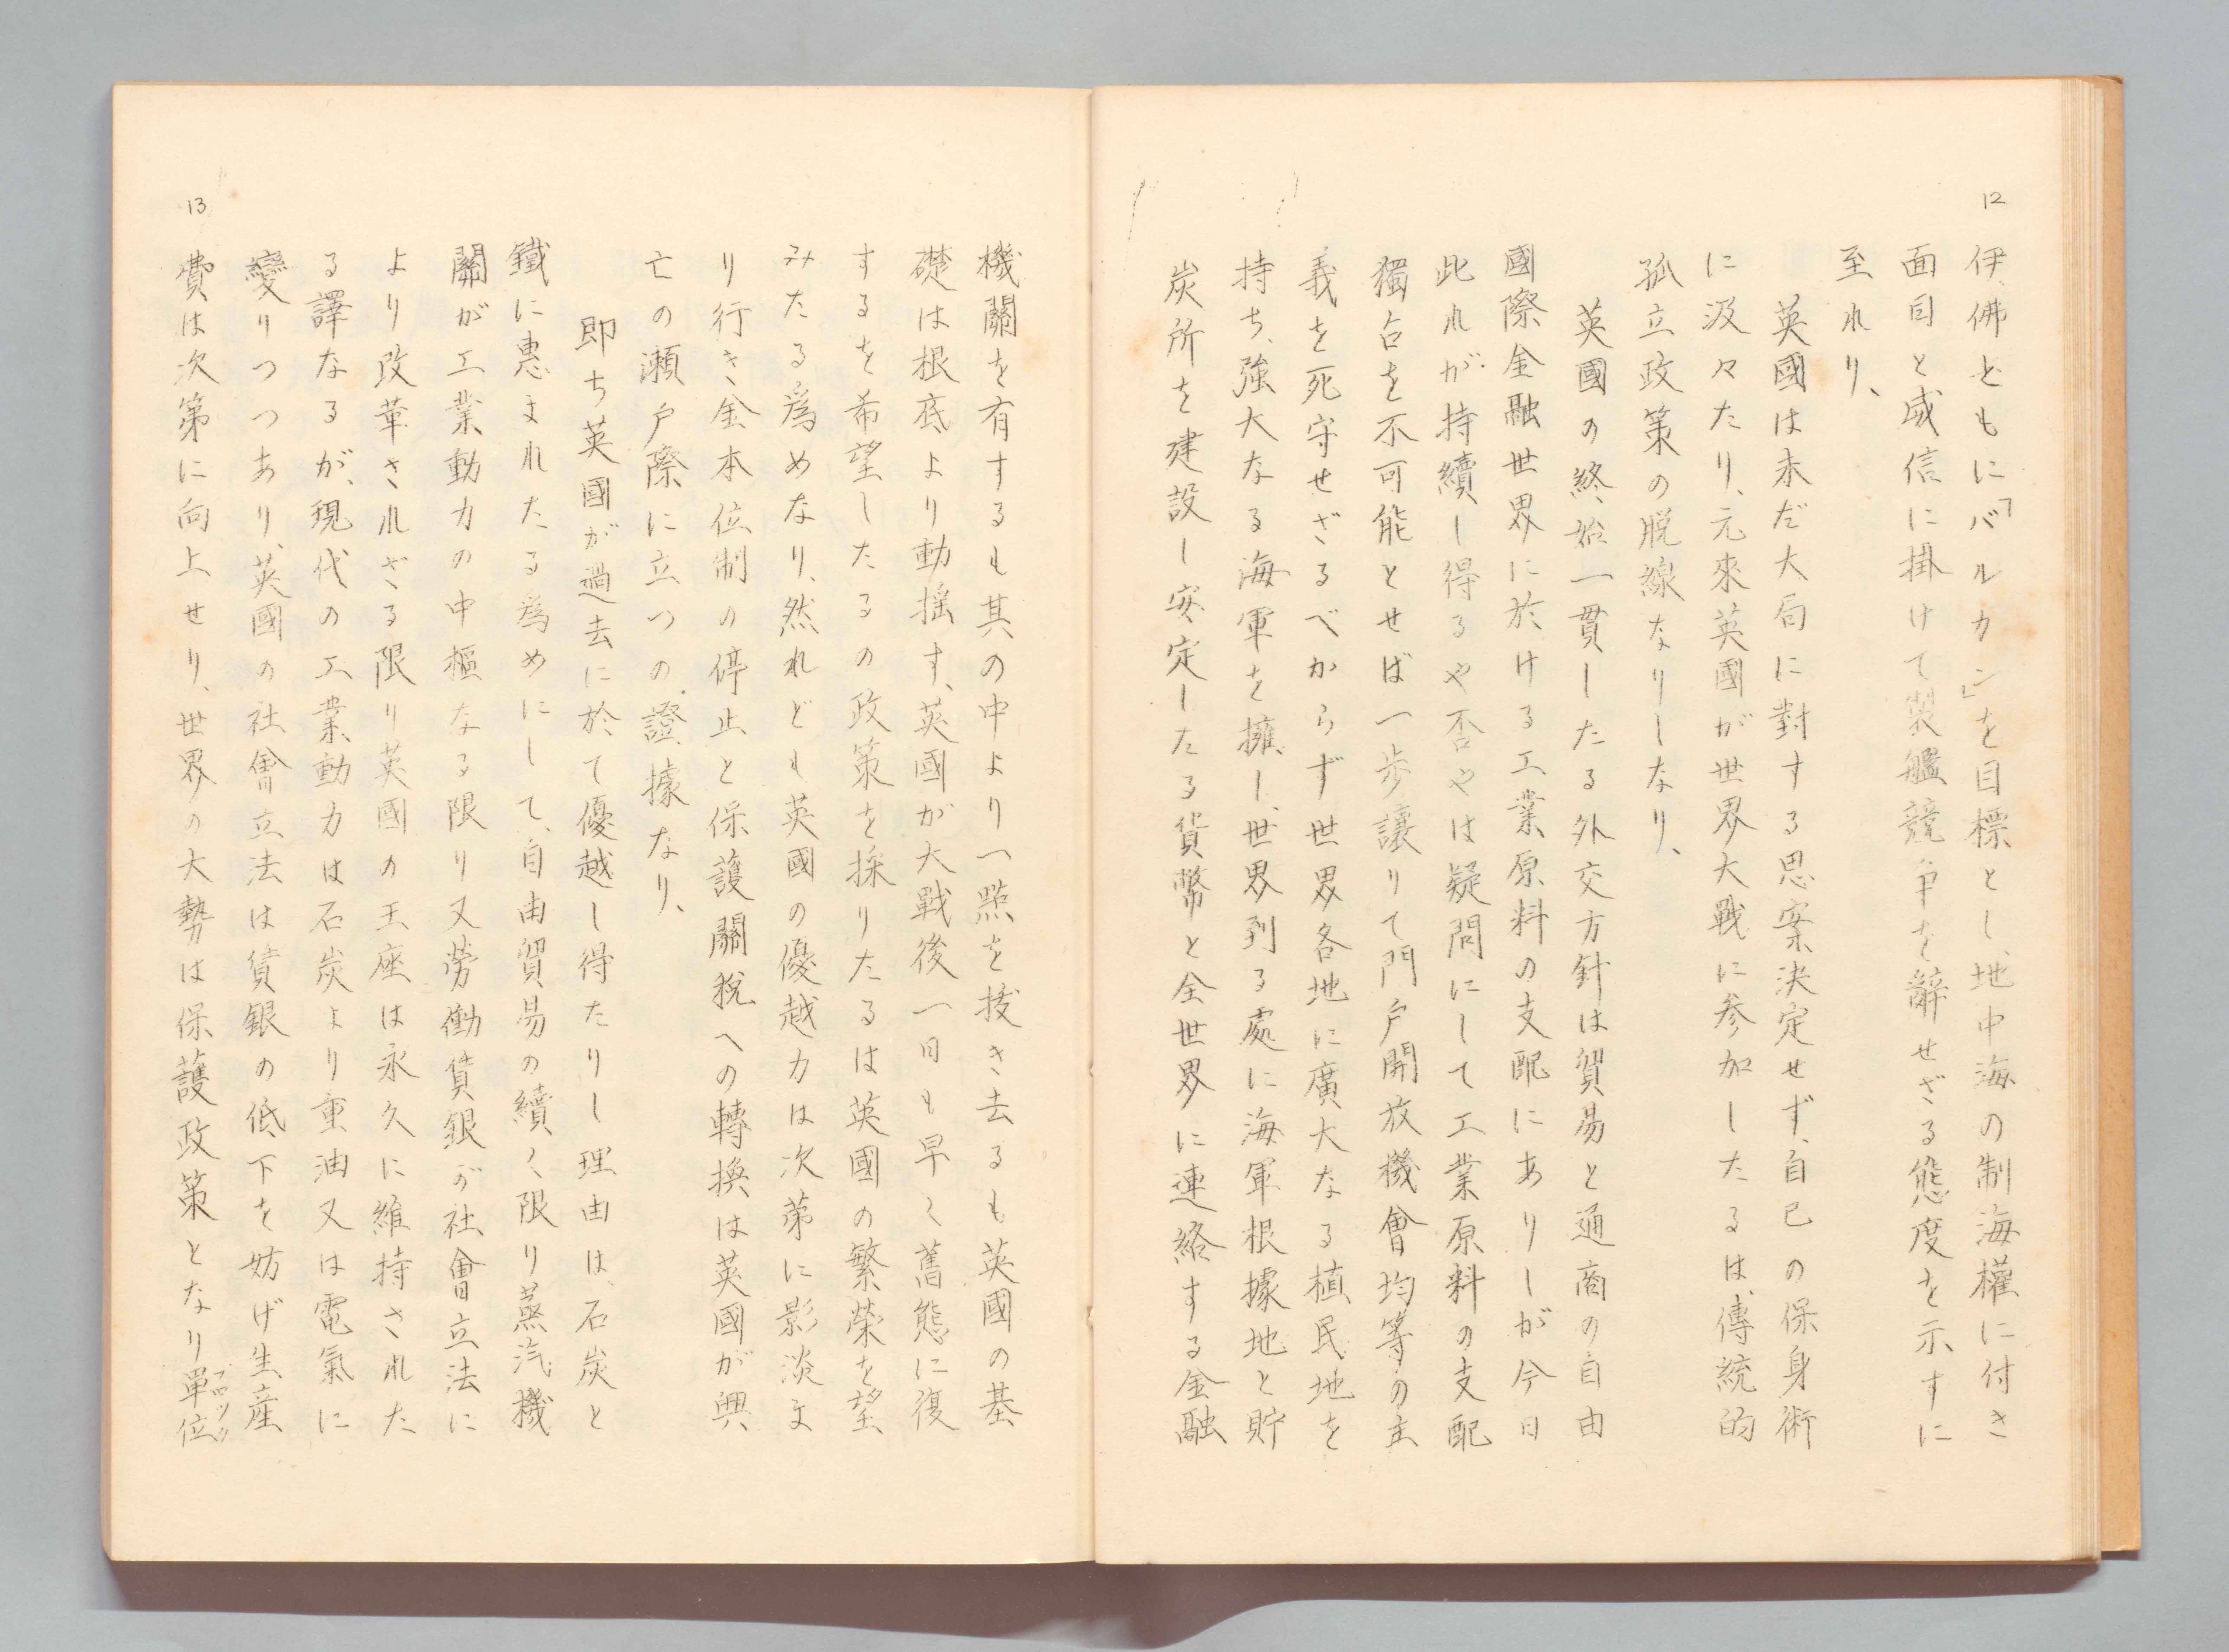 12
伊、佛ともに「バルカン」を目標とし、地中海の制海權に付き
面目と威信に掛けて製艦競争を辭せざる態度を示すに
至れり、
英國は未だ大局に對する思案決定せず、自己の保身術
に汲々たり、元來英國が世界大戰に参加したるは、傳統的
孤立政策の脱線なりしなり、
英國の終始一貫したる外交方針は貿易と通商の自由
國際金融世界に於ける工業原料の支配にありしが今日
此れが持續し得るや否やは疑問にして工業原料の支配
獨占を不可能とせば一歩讓りて門戸開放機會均等の主
義を死守せざるべからず世界各地に廣大なる植民地を
持ち、強大なる海軍を擁し、世界到る處に海軍根據地と貯
炭所を建設し安定したる貨幣と全世界に連絡する金融
機關を有するも其の中より一點を拔き去るも英國の基
礎は根底より動搖す、英國が大戰後一日も早く舊態に復
するを希望したるの政策を採りたるは英國の繁榮を望
みたる爲めなり、然れども英國の優越力は次第に影淡ま
り行き金本位制の停止と保護關税への轉換は英國が興
亡の瀬戸際に立つの證據なり、
即ち英國が過去に於て優越し得たりし理由は、石炭と
鐵に惠まれたる爲めにして、自由貿易の續く限り蒸汽機
關が工業動力の中樞なる限り又勞働賃銀が社會立法に
より改革されざる限り英國の王座は永久に維持された
る譯なるが、現代の工業動力は石炭より重油又は電氣に
變りつつあり、英國の社會立法は賃銀の低下を妨げ生産
費は次第に向上せり、世界の大勢は保護政策となり單位
ブロック
13